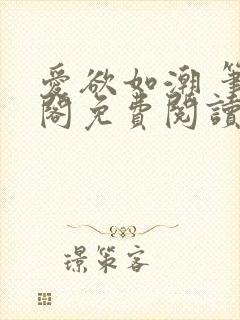 愛欲如潮 筆
閣免費閱讀
璟策客